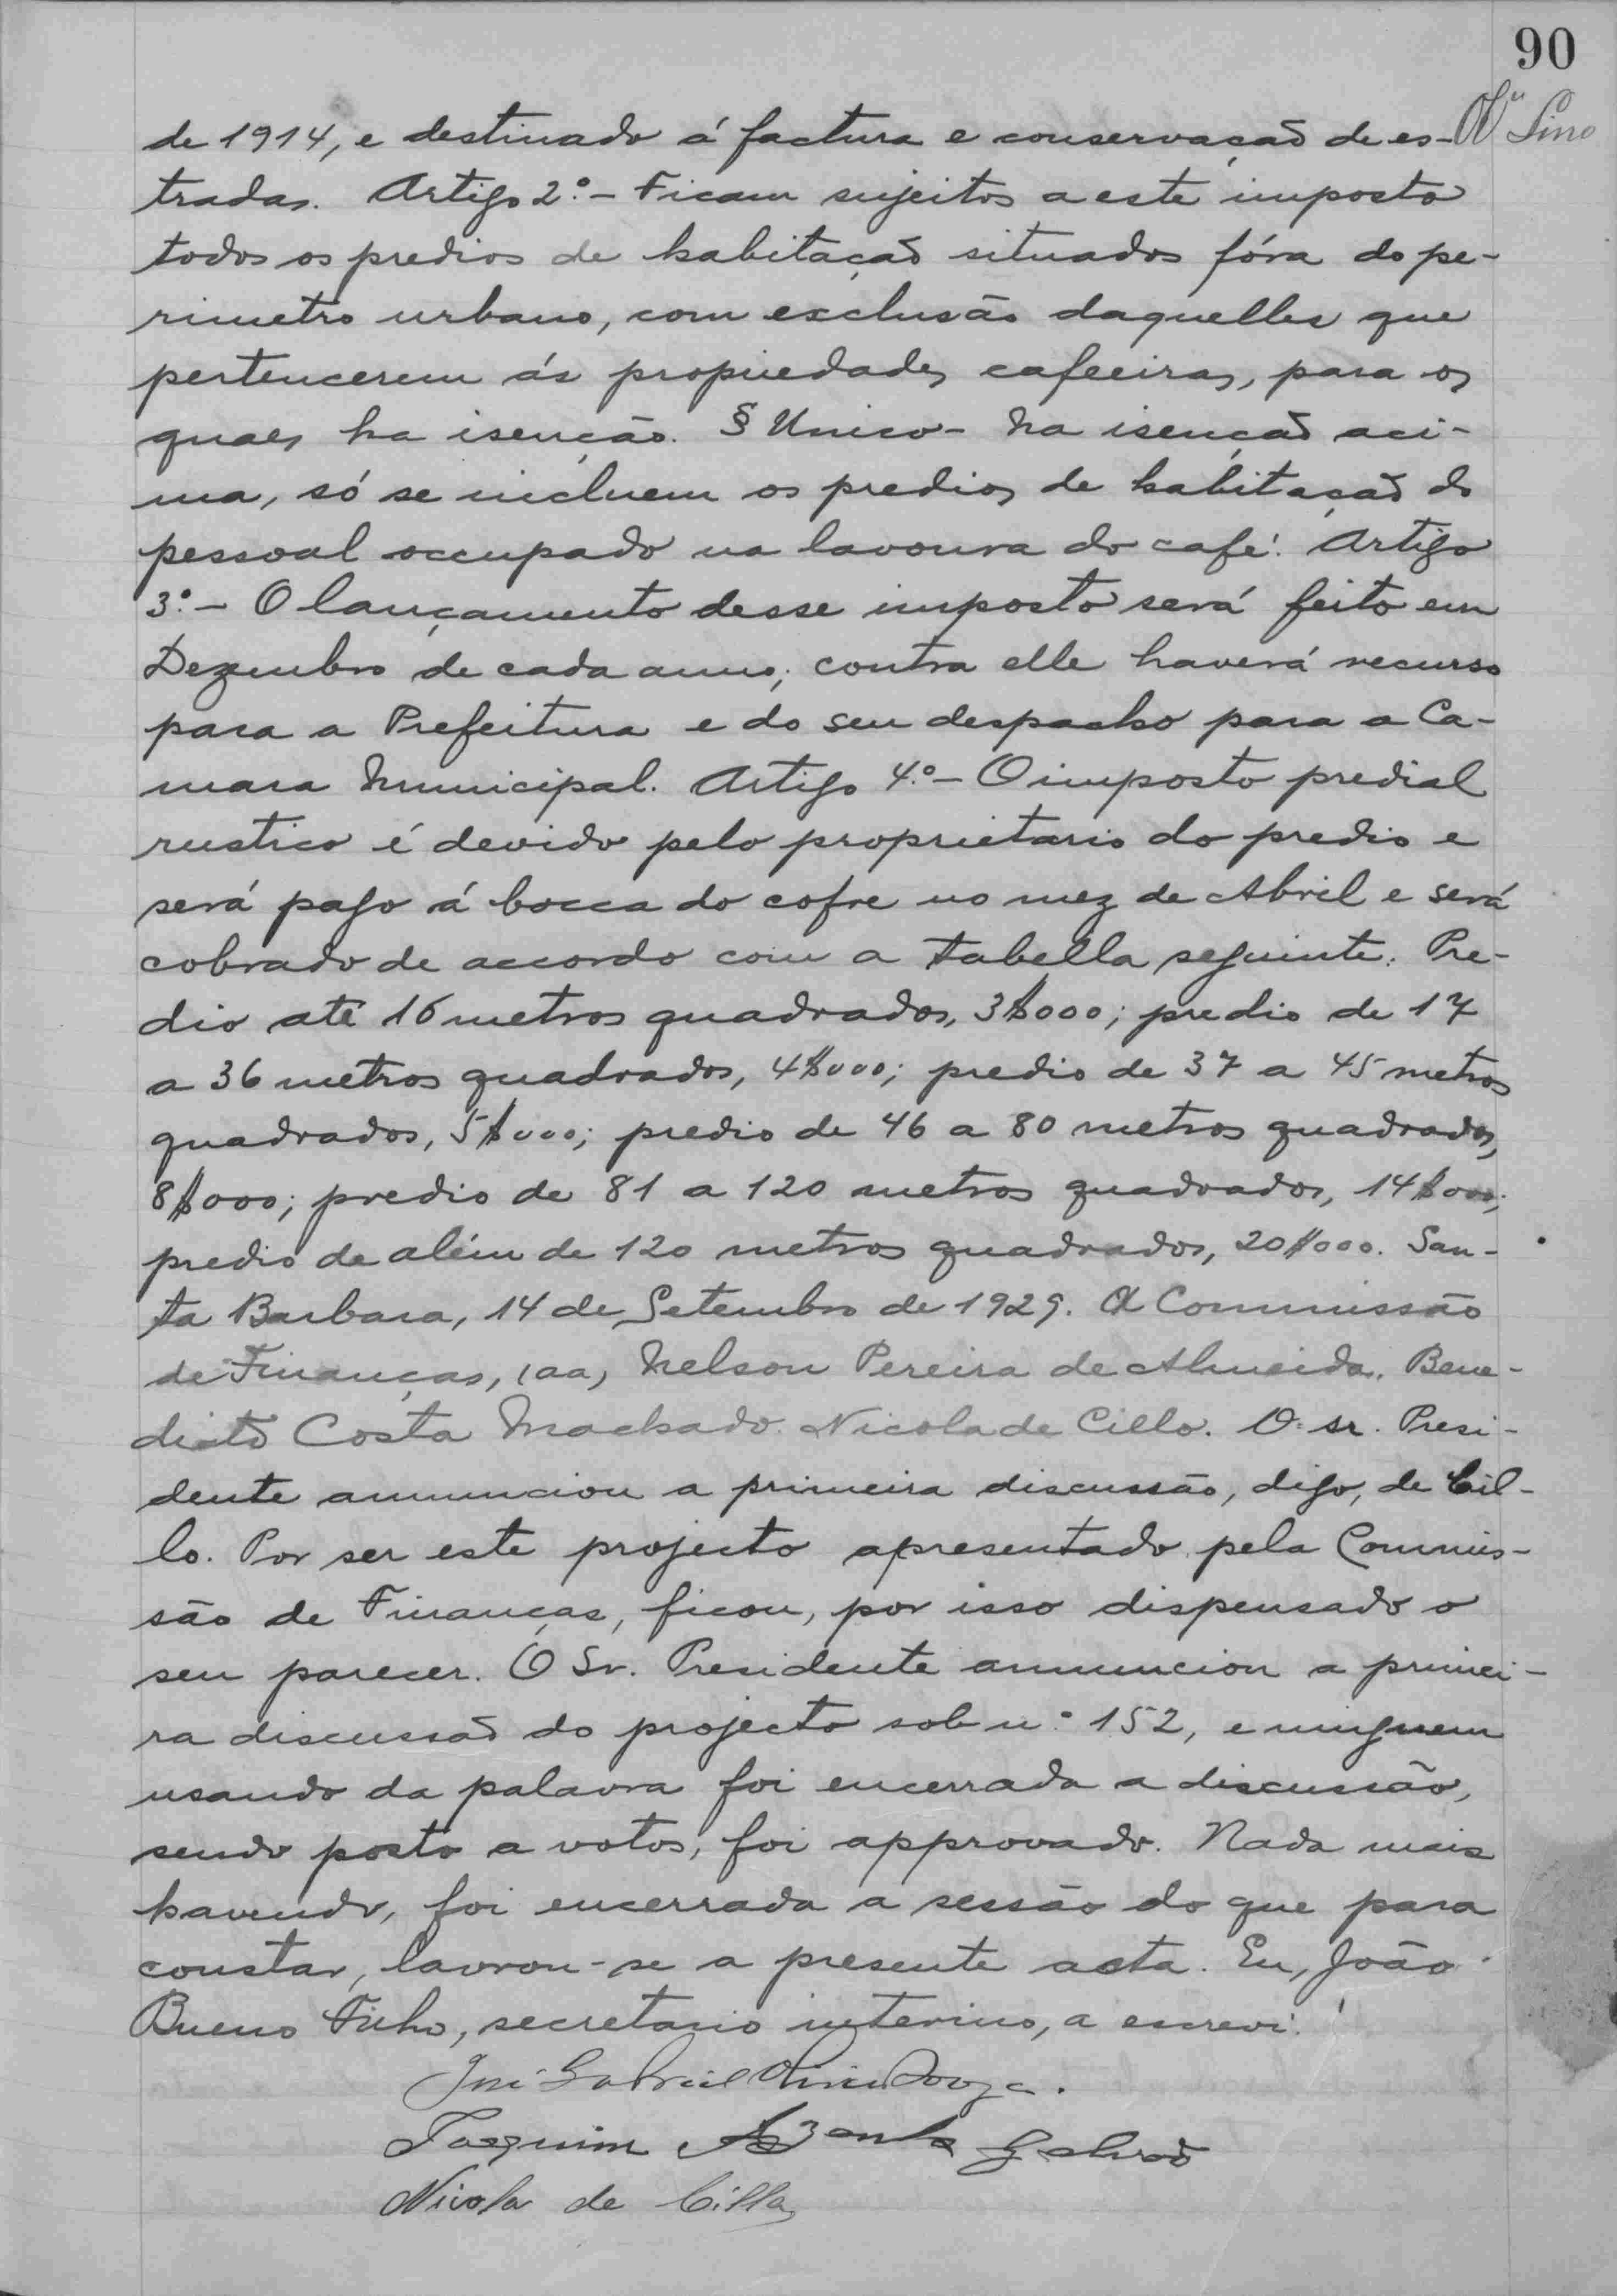 90
Lino
de 1914, e destinado á factura e conservação de es-
tradas. Artigo 2º.- Ficam sujeitos a este imposto
todos os predios de habitação situados fóra do pe-
rimetro urbano, com exclusão daquelles que
pertencerem ás propriedades cafeeiras, para os
quaes ha isenção. § Unico- Na isenção aci-
ma, só se incluem os predios de habitação do
pessoal occupado na lavoura do café. Artigo
3º.- O lançamento desse imposto será feito em
Dezembro de cada anno; contra elle haverá recurso
para a Prefeitura e do seu despacho para a Ca-
mara Municipal. Artigo 4.º- O imposto predial
rustico é devido pelo proprietario do predio e
será pago á bocca do cofre no mez de Abril e será
cobrado de accordo com a tabella seguinte: Pre-
dio até 16 metros quadrados, 3$000; predio de 17
a 36 metros quadrados, 4$000; predio de 37 a 45 metros
quadrados, 5$000; predio de 46 a 80 metros quadrados,
8$000; predio de 81 a 120 metros quadrados, 14$000;
predio de além de 120 metros quadrados, 20$000. San-
ta Barbara, 14 de Setembro de 1929. A Commissão
de Finanças, (aa) Nelson Pereira de Almeida. Bene-
dicto Costa Machado. Nicola de Cillo. O sr. Presi-
dente annunciou a primeira discussão, digo, de Cil-
lo. Por ser este projecto apresentado pela Commis-
são de Finanças, ficou, por isso dispensado o
seu parecer. O Sr. Presidente annunciou a primei-
ra discussão do projecto sob nº 152, e ninguem
usando da palavra foi encerrada a discussão,
sendo posto a votos, foi approvado. Nada mais
havendo, foi encerrada a sessão do que para
constar, lavrou-se a presente acta. Eu, João
Bueno Filho, secretario interino, a escrevi.
José Gabriel
Joaquim Galvão
Nicola de Cillo